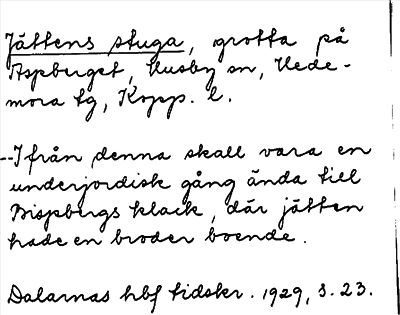 Jättens stuga, grotta på
Aspberget, Husby sn, Hede-
mora tg, Kopp. l.
--Ifrån denna skall vara en
underjordisk gång ända till
Bispbergs klack, där jätten
hade en broder boende.
Dalarnas hbf tidskr. 1929, s. 23.